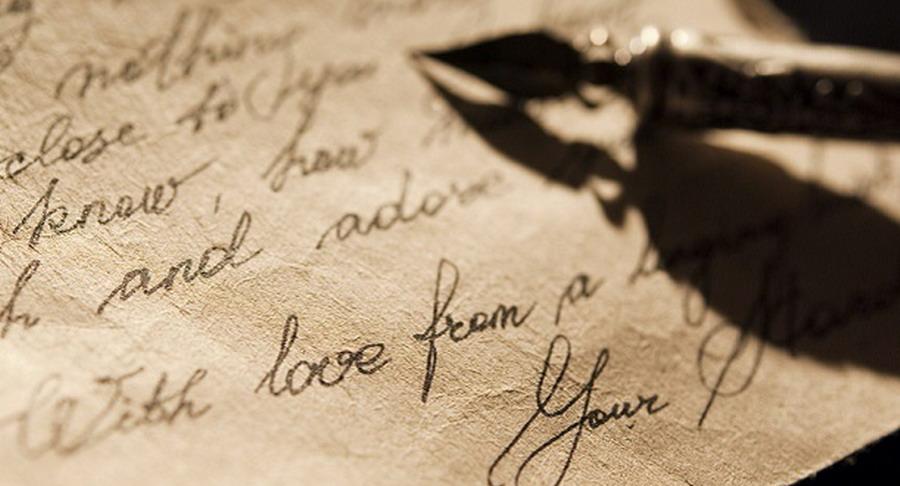 nothing
close to you
know, how
and adore
With love from a
Your